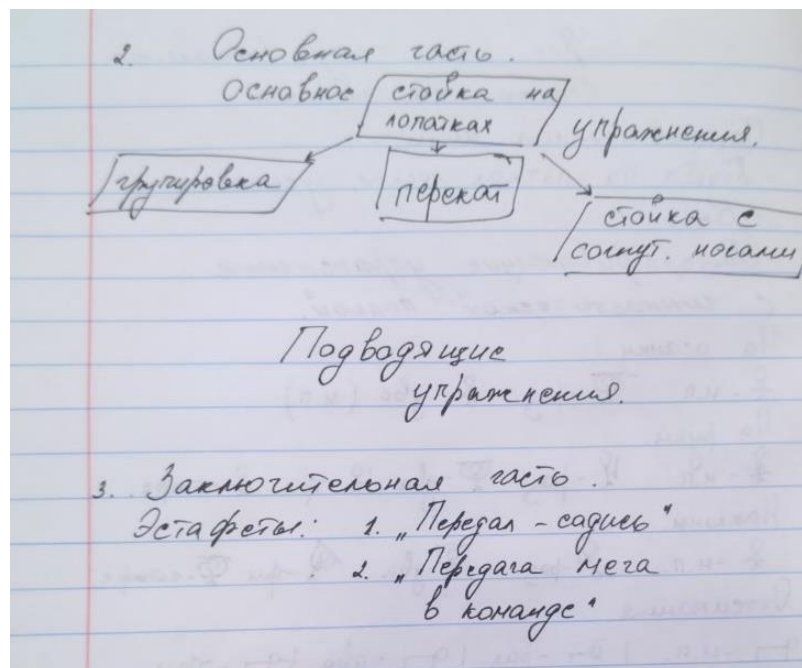 2. Основная часть.
Основное стойка на
лопатках упражнения.
группировка
перекат
стойка с
согнут. ногами
Подводящие
упражнения.
3. Заключительная часть.
Эстафеты: 1. „Передал - садись"
2. „Передача мяча
в команде"